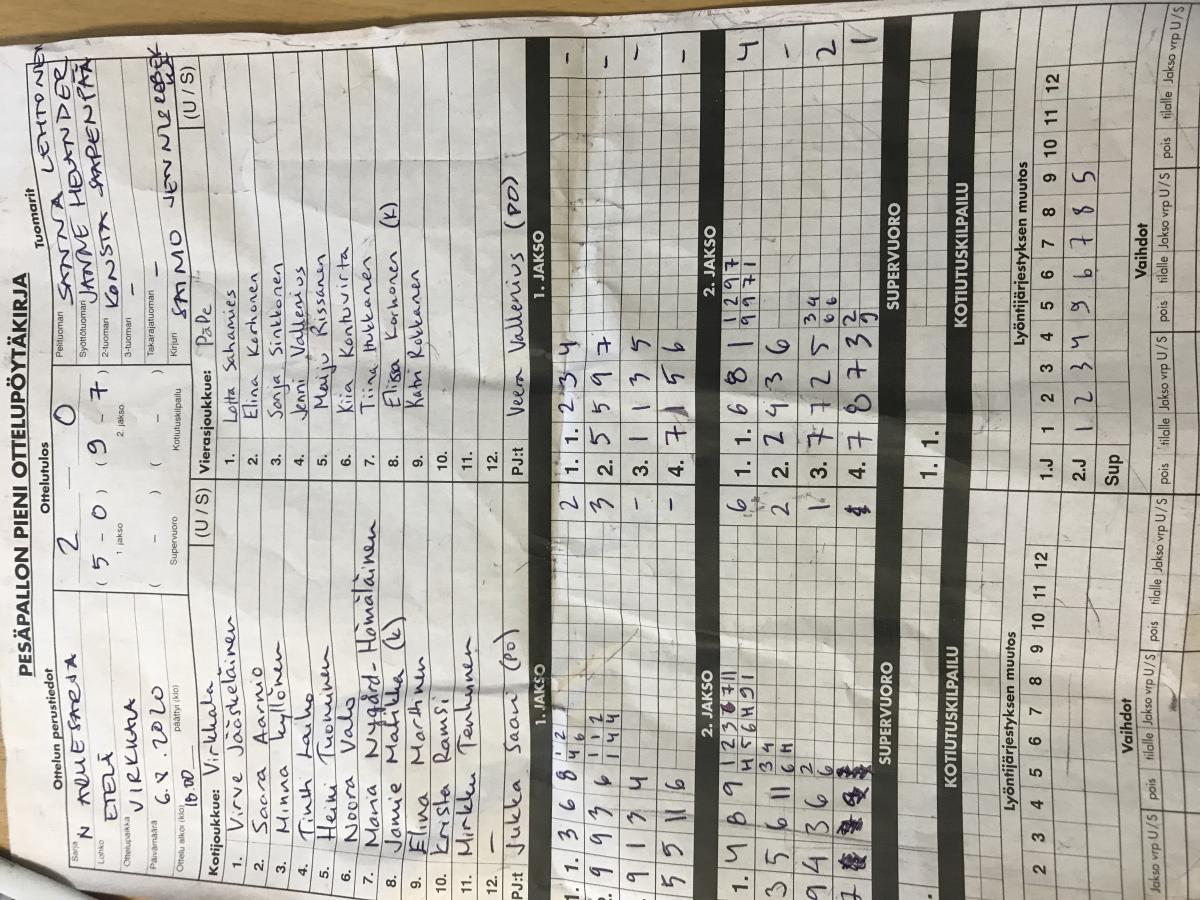 PESÄPALLON PIENI OTTELUPÖYTÄKIRJA
Ottelun perustiedot
Sarja N ALUESARJA
Lohko ETELÄ
Ottelupaikka VIRKKALA
Päivämäärä 6.8.2020
Ottelu alkoi (klo) 18.00 päättyi (klo)
Ottelutulos
2 0
( 5 - 0 ) ( 9 - 7 )
1 jakso 2. jakso
( - ) ( - )
Supervuoro Kotiutuskilpailu
Tuomarit
Pelituomari SANNA LEHTONEN
Syöttötuomari JANNE HELANDER
2-tuomari KONSTA SAARENPÄÄ
3-tuomari -
Takarajatuomari -
Kirjuri SAIMO
Kotijoukkue: Virkkala (U / S)
1. Virve Jääskeläinen
2. Saara Aarnio
3. Minna Kyllönen
4. Tintti Lauko
5. Heini Tuominen
6. Noora Valo
7. Maria Nygård-Hämäläinen
8. Jannie Matikka (k)
9. Elina Martinen
10. Krista Ramsi
11. Mirkku Tenhunen
12. —
PJ:t Jukka Saari (PO)
Vierasjoukkue: PäPe (U / S)
1. Lotta Sahamies
2. Elina Korhonen
3. Sonja Sinkkonen
4. Jenni Vallenius
5. Maiju Rissanen
6. Kiia Kontuvirta
7. Tiina Hukkanen
8. Elissa Korhonen (k)
9. Katri Rokkanen
10.
11.
12.
PJ:t Veera Vallenius (PO)
1. JAKSO
1. 1. 3 6 8 1 2 4 6 2
9 9 3 6 1 1 2 1 4 4 3
9 1 3 4 -
5 5 11 6 -
1. JAKSO
1. 1. 2 3 4 -
2. 5 5 9 7 -
3. 1 1 3 5 -
4. 7 1 5 6 -
2. JAKSO
1. 4 8 9 1 2 3 6 7 11 6
3 5 6 11 3 4 6 H 2
9 4 3 6 2 6 1
7
2. JAKSO
1. 1. 6 8 1 1 2 9 7 9 9 7 1 4
2. 2 4 3 6 -
3. 7 7 2 5 3 4 6 6 2
4. 7 8 7 3 2 9 1
SUPERVUORO
SUPERVUORO
1. 1.
KOTIUTUSKILPAILU
KOTIUTUSKILPAILU
Lyöntijärjestyksen muutos
2 3 4 5 6 7 8 9 10 11 12
Lyöntijärjestyksen muutos
1.J 1 2 3 4 5 6 7 8 9 10 11 12
2.J 1 2 3 4 9 6 7 8 5
Sup
Vaihdot
Jakso vrp U / S pois tilalle Jakso vrp U / S pois tilalle Jakso vrp U / S pois
Vaihdot
pois tilalle Jakso vrp U / S pois tilalle Jakso vrp U / S pois tilalle Jakso vrp U / S